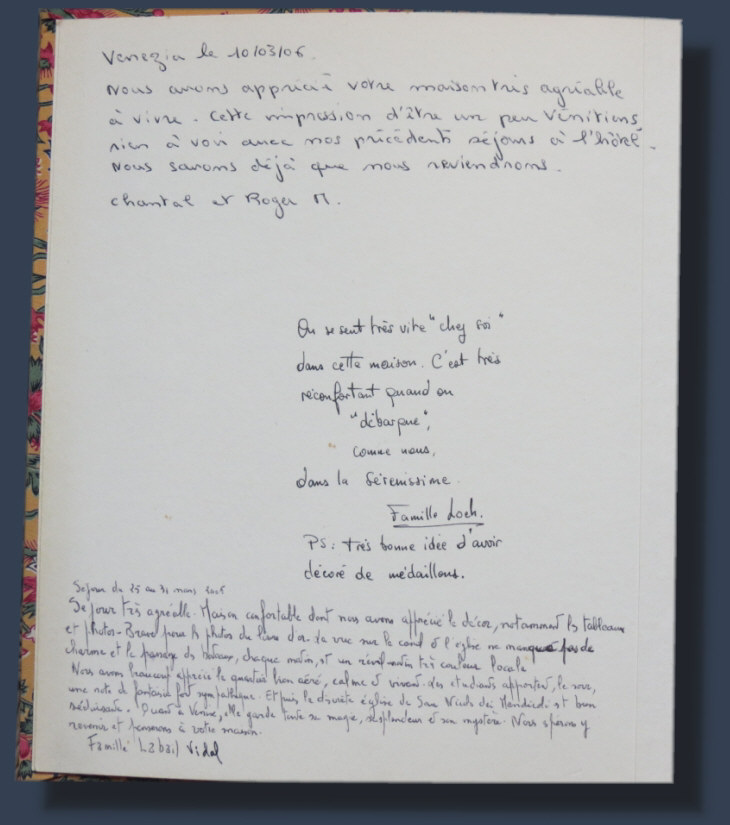 Venezia le 10/03/06.
Nous avons apprécié votre maison très agréable
à vivre. Cette impression d'être un peu Vénitiens,
rien à voir avec nos précédents séjours à l'hôtel.
Nous savons déjà que nous reviendrons.
Chantal et Roger M.
On se sent très vite "chez soi"
dans cette maison. C'est très
réconfortant quand on
"débarque",
comme nous,
dans la Sérénissime.
Famille Loch.
PS: très bonne idée d'avoir
décoré de médaillons.
Séjour du 25 au 31 mars 2006
Séjour très agréable. Maison confortable dont nous avons apprécié le décor, notamment les tableaux
et photos - Bravo pour les photos du livre d'or. La vue sur le canal et l'église ne manque pas de
charme et le passage des bateaux, chaque matin, est un réveil matin très couleur locale.
Nous avons beaucoup apprécié le quartier bien aéré, calme et vivant. des étudiants apportent, le soir,
une note de fantaisie fort sympathique. Et puis la discrète église de San Nicolo dei Mendicoli est bien
séduisante. Quant à Venise, elle garde toute sa magie, sa splendeur et son mystère. Nous espérons y
revenir et penserons à votre maison.
Famille Vidal